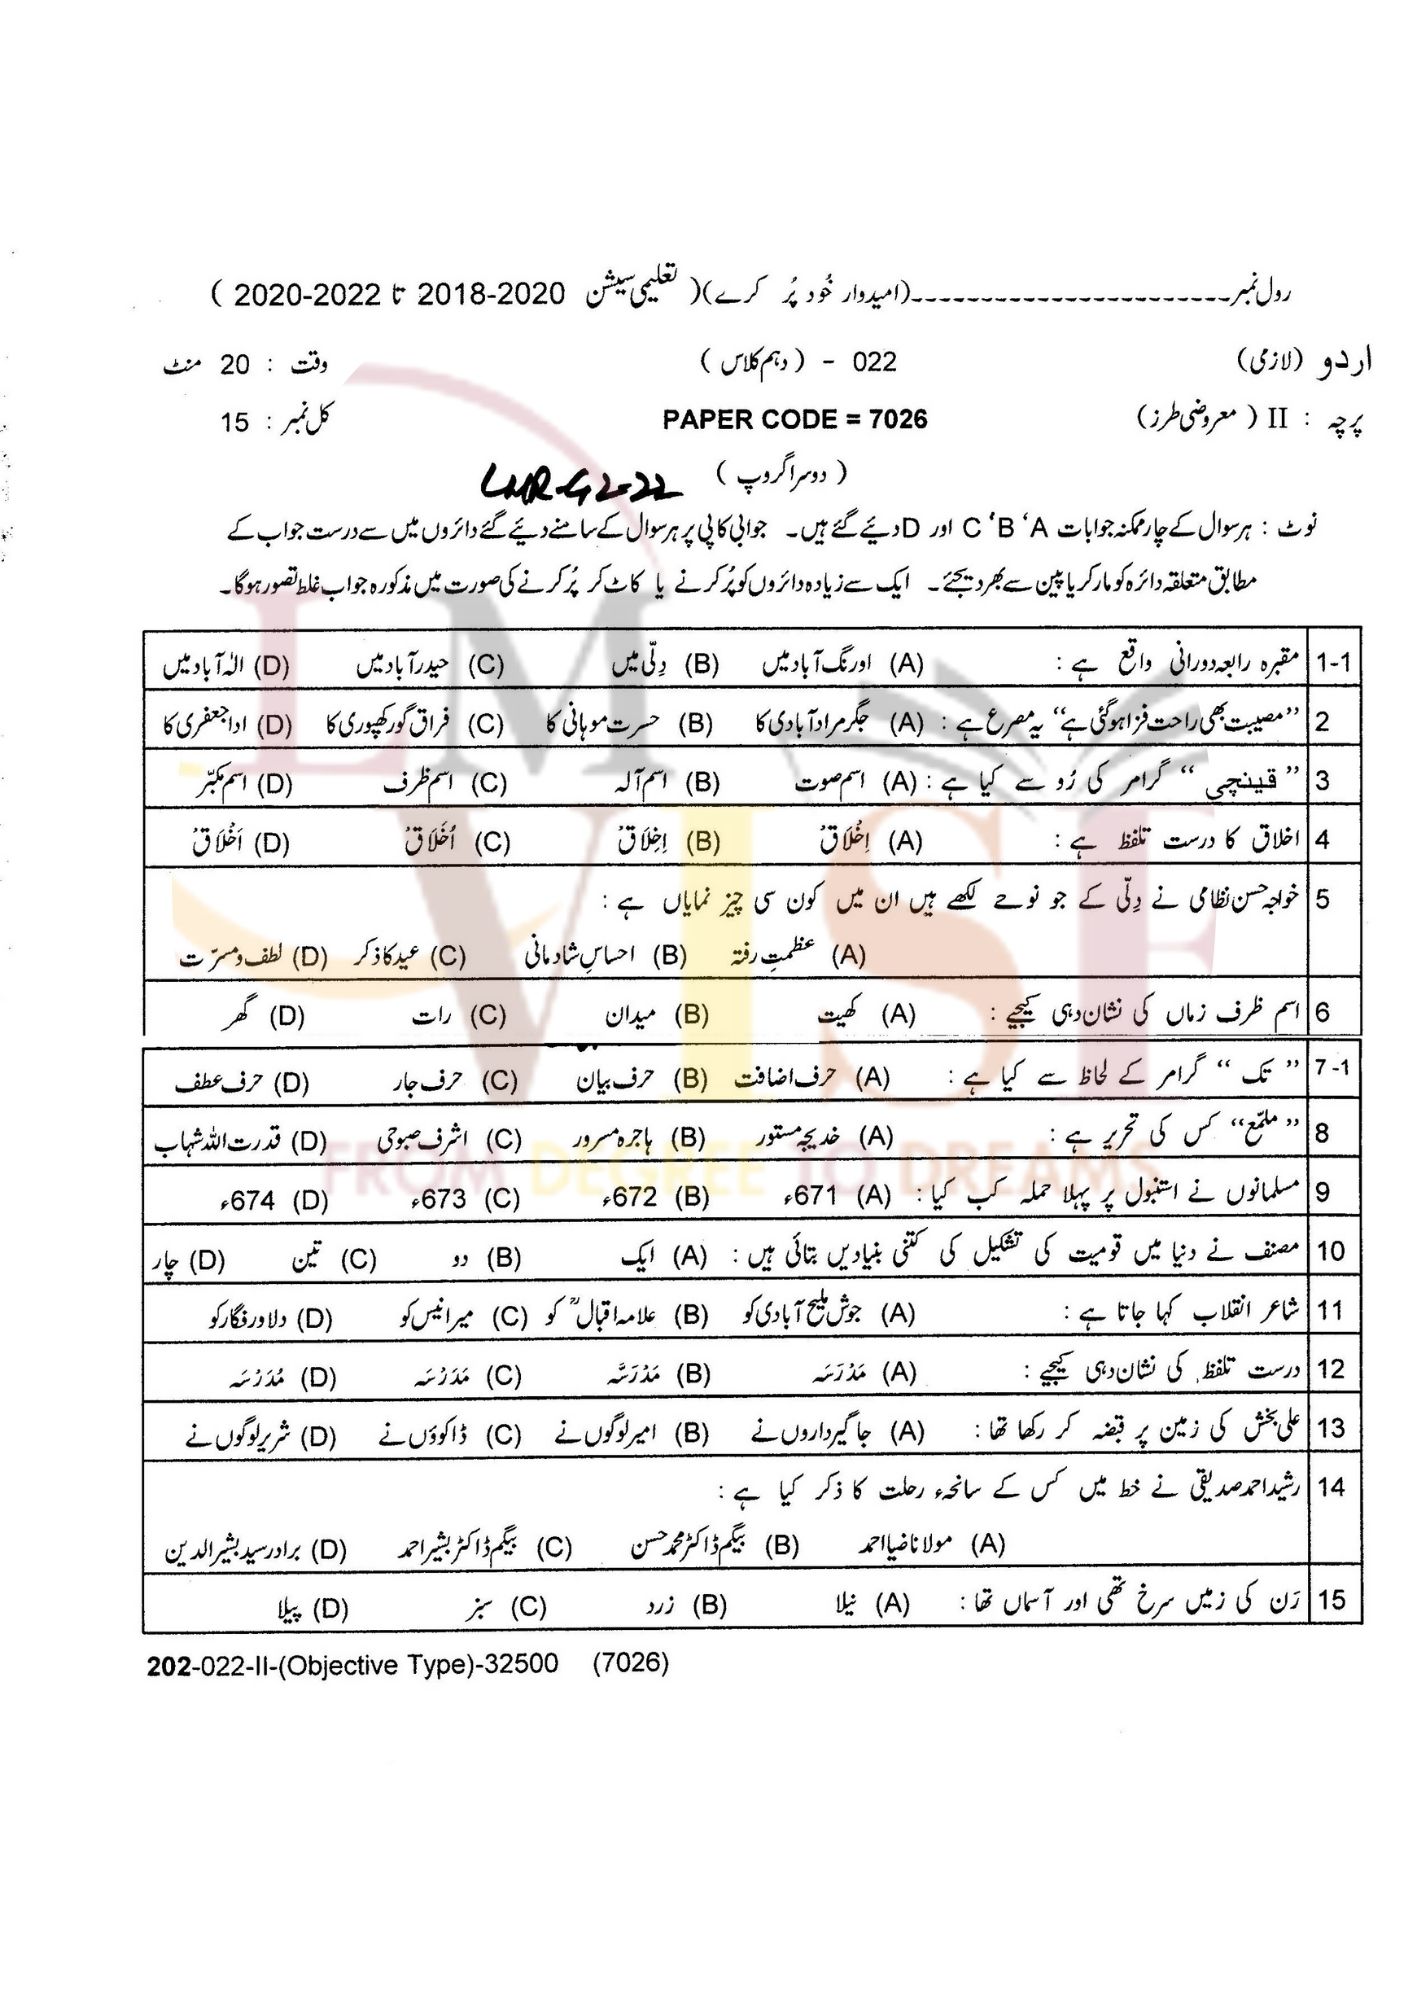 رول نمبر_______________________(امیدوار خُود پُر کرے)( تعلیمی سیشن 2018-2020 تا 2020-2022 )
اردو (لازمی) 022 - ( دہم کلاس ) وقت : 20 منٹ
پرچہ : II ( معروضی طرز) PAPER CODE = 7026 کل نمبر : 15
( دوسرا گروپ ) LHR-G2-22
نوٹ : ہر سوال کے چار ممکنہ جوابات A ‘B ‘C اور D دیئے گئے ہیں۔ جوابی کاپی پر ہر سوال کے سامنے دیئے گئے دائروں میں سے درست جواب کے
مطابق متعلقہ دائرہ کو مارکر یا پین سے بھر دیجئے۔ ایک سے زیادہ دائروں کو پُر کرنے یا کاٹ کر پُر کرنے کی صورت میں مذکورہ جواب غلط تصور ہوگا۔
1-1 مقبرہ رابعہ دورانی واقع ہے : (A) اورنگ آباد میں (B) دِلّی میں (C) حیدر آباد میں (D) الٰہ آباد میں
2 ’’مصیبت بھی راحت فزا ہو گئی ہے‘‘ یہ مصرع ہے : (A) جگر مراد آبادی کا (B) حسرت موہانی کا (C) فراق گورکھپوری کا (D) ادا جعفری کا
3 ’’ قینچی ‘‘ گرامر کی رُو سے کیا ہے : (A) اسم صوت (B) اسم آلہ (C) اسم ظرف (D) اسم مکبّر
4 اخلاق کا درست تلفظ ہے : (A) اِخْلَاقْ (B) اِخِلَاقْ (C) اُخَلَاقْ (D) اَخْلَاقْ
5 خواجہ حسن نظامی نے دِلّی کے جو نوحے لکھے ہیں ان میں کون سی چیز نمایاں ہے :
(A) عظمتِ رفتہ (B) احساسِ شادمانی (C) عید کا ذکر (D) لطف و مسرّت
6 اسم ظرف زماں کی نشان دہی کیجیے : (A) کھیت (B) میدان (C) رات (D) گھر
7-1 ’’ تک ‘‘ گرامر کے لحاظ سے کیا ہے : (A) حرف اضافت (B) حرف بیان (C) حرف جار (D) حرف عطف
8 ’’ملمّع‘‘ کس کی تحریر ہے : (A) خدیجہ مستور (B) ہاجرہ مسرور (C) اشرف صبوحی (D) قدرت اللہ شہاب
9 مسلمانوں نے استنبول پر پہلا حملہ کب کیا : (A) 671ء (B) 672ء (C) 673ء (D) 674ء
10 مصنف نے دنیا میں قومیت کی تشکیل کی کتنی بنیادیں بتائی ہیں : (A) ایک (B) دو (C) تین (D) چار
11 شاعر انقلاب کہا جاتا ہے : (A) جوش ملیح آبادی کو (B) علامہ اقبالؒ کو (C) میر انیس کو (D) دلاور فگار کو
12 درست تلفظ کی نشان دہی کیجیے : (A) مَدْرَسَہ (B) مَدْرَسَّہ (C) مَدَرْسَہ (D) مُدَرْسَہ
13 علی بخش کی زمین پر قبضہ کر رکھا تھا : (A) جاگیرداروں نے (B) امیر لوگوں نے (C) ڈاکوؤں نے (D) شریر لوگوں نے
14 رشید احمد صدیقی نے خط میں کس کے سانحۂ رحلت کا ذکر کیا ہے :
(A) مولانا ضیا احمد (B) بیگم ڈاکٹر محمد حسن (C) بیگم ڈاکٹر بشیر احمد (D) برادر سید بشیر الدین
15 رَن کی زمیں سرخ تھی اور آسماں تھا : (A) نیلا (B) زرد (C) سبز (D) پیلا
202-022-II-(Objective Type)-32500 (7026)
LM VISE
FROM DEGREE TO DREAMS